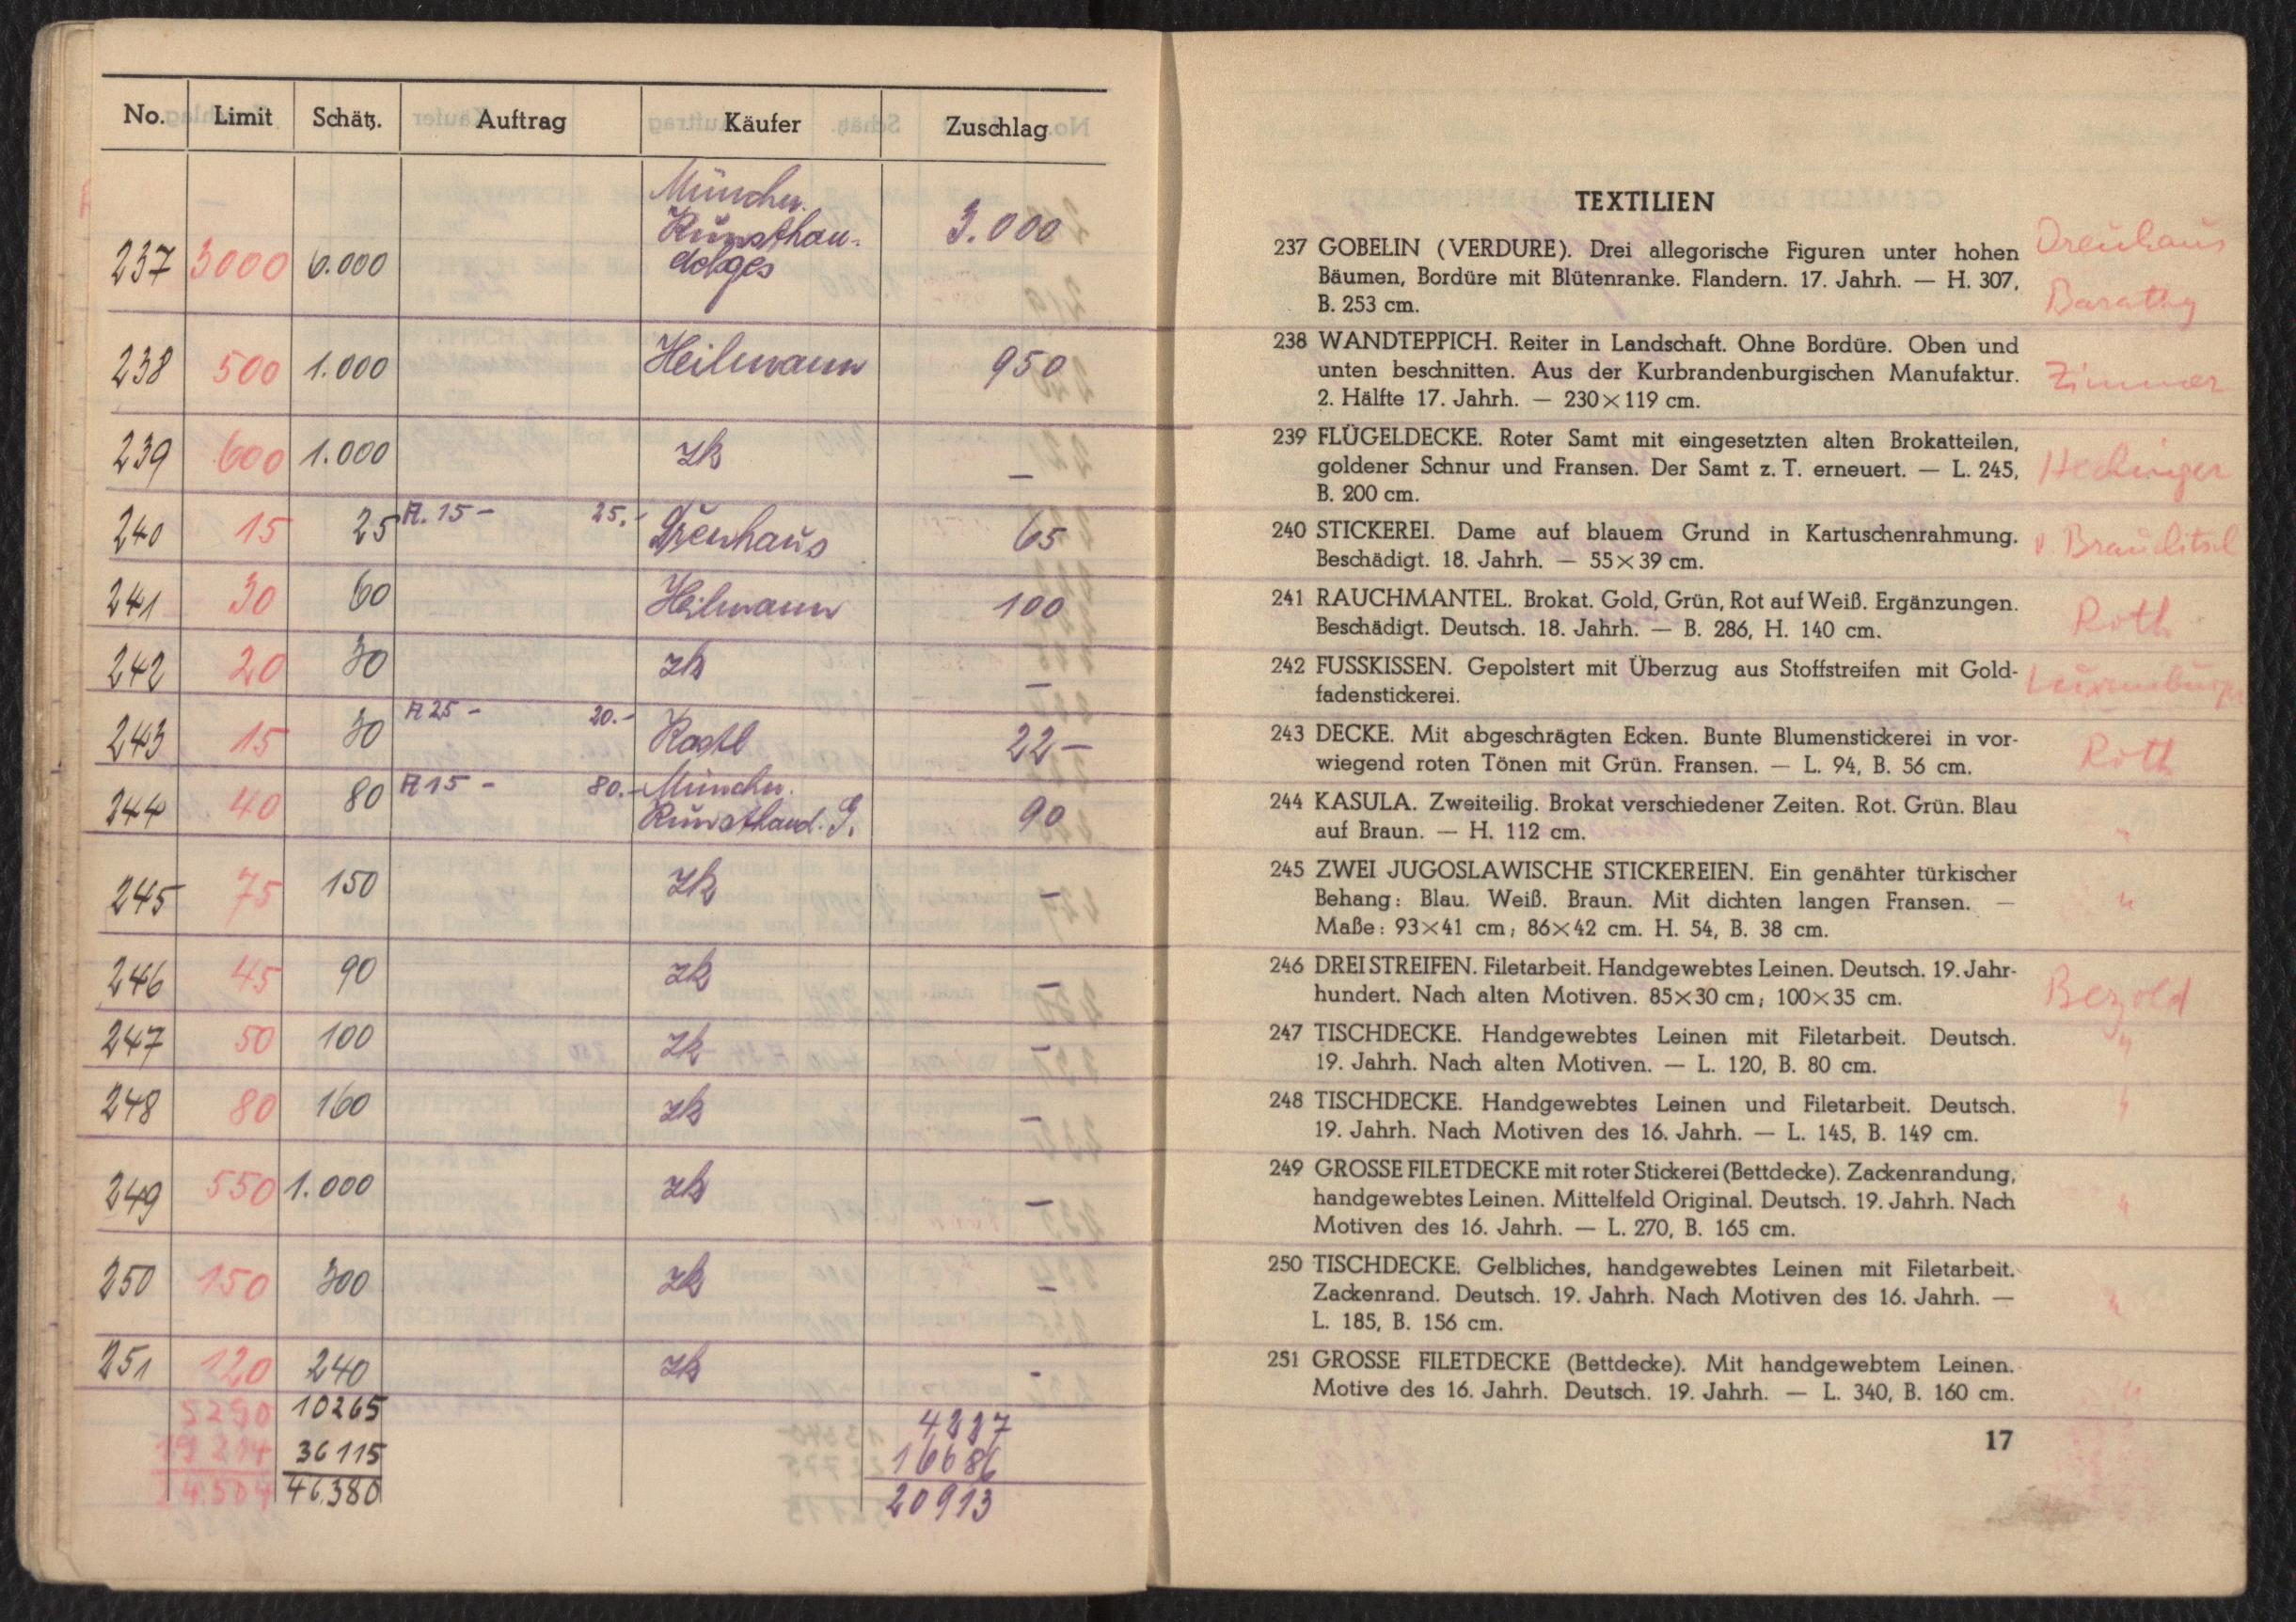 No. Limit Schätz. Auftrag Käufer Zuschlag
Münchn.
Kunsthan-
237 3000 6.000 3.000
238 500 1.000 Heilmann 950
239 600 1.000 zk —
240 15 25 A. 15 - 25.- Dreuhaus 65
241 30 60 Heilmann 100
242 20 30 zk —
243 15 30 A 25 - 20.- Kastl 22 —
244 40 80 A 15 - 80.- Münchn.
Kunsthand. G. 90
245 75 150 zk —
246 45 90 zk —
247 50 100 zk —
248 80 160 zk —
249 550 1.000 zk —
250 150 300 zk —
251 120 240 zk -
5290 10265 4227
19214 36115 16686
24.504 46.380 20913
TEXTILIEN
237 GOBELIN (VERDURE). Drei allegorische Figuren unter hohen Dreuhaus
Bäumen, Bordüre mit Blütenranke. Flandern. 17. Jahrh. — H. 307,
B. 253 cm. Barathy
238 WANDTEPPICH. Reiter in Landschaft. Ohne Bordüre. Oben und
unten beschnitten. Aus der Kurbrandenburgischen Manufaktur. Zimmer
2. Hälfte 17. Jahrh. — 230×119 cm.
239 FLÜGELDECKE. Roter Samt mit eingesetzten alten Brokatteilen,
goldener Schnur und Fransen. Der Samt z. T. erneuert. — L. 245, Hechinger
B. 200 cm.
240 STICKEREI. Dame auf blauem Grund in Kartuschenrahmung. v Brauchitsch
Beschädigt. 18. Jahrh. — 55×39 cm.
241 RAUCHMANTEL. Brokat. Gold, Grün, Rot auf Weiß. Ergänzungen. Roth
Beschädigt. Deutsch. 18. Jahrh. — B. 286, H. 140 cm.
242 FUSSKISSEN. Gepolstert mit Überzug aus Stoffstreifen mit Gold-
fadenstickerei.
243 DECKE. Mit abgeschrägten Ecken. Bunte Blumenstickerei in vor- Roth
wiegend roten Tönen mit Grün. Fransen. — L. 94, B. 56 cm.
244 KASULA. Zweiteilig. Brokat verschiedener Zeiten. Rot. Grün. Blau
auf Braun. — H. 112 cm. "
245 ZWEI JUGOSLAWISCHE STICKEREIEN. Ein genähter türkischer
Behang: Blau. Weiß. Braun. Mit dichten langen Fransen. — "
Maße: 93×41 cm; 86×42 cm. H. 54, B. 38 cm.
246 DREI STREIFEN. Filetarbeit. Handgewebtes Leinen. Deutsch. 19. Jahr- Bezold
hundert. Nach alten Motiven. 85×30 cm; 100×35 cm.
247 TISCHDECKE. Handgewebtes Leinen mit Filetarbeit. Deutsch. "
19. Jahrh. Nach alten Motiven. — L. 120, B. 80 cm.
248 TISCHDECKE. Handgewebtes Leinen und Filetarbeit. Deutsch. "
19. Jahrh. Nach Motiven des 16. Jahrh. — L. 145, B. 149 cm.
249 GROSSE FILETDECKE mit roter Stickerei (Bettdecke). Zackenrandung,
handgewebtes Leinen. Mittelfeld Original. Deutsch. 19. Jahrh. Nach "
Motiven des 16. Jahrh. — L. 270, B. 165 cm.
250 TISCHDECKE. Gelbliches, handgewebtes Leinen mit Filetarbeit.
Zackenrand. Deutsch. 19. Jahrh. Nach Motiven des 16. Jahrh. — "
L. 185, B. 156 cm.
251 GROSSE FILETDECKE (Bettdecke). Mit handgewebtem Leinen.
Motive des 16. Jahrh. Deutsch. 19. Jahrh. — L. 340, B. 160 cm. "
17